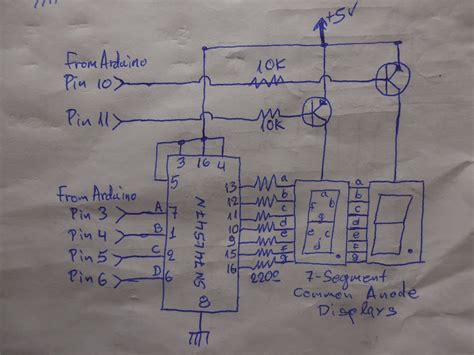 +5V
From Arduino
Pin 10
10K
Pin 11
10K
3 16 4
5
From Arduino
Pin 3 A 7
Pin 4 B 1
Pin 5 C 2
Pin 6 D 6
SN74LS47N
8
13 a a
12 b b
11 c c
10 d d
9 e e
15 f f
16 g g
a
f b
g
e c
d
220Ω
7-Segment
Common Anode
Displays